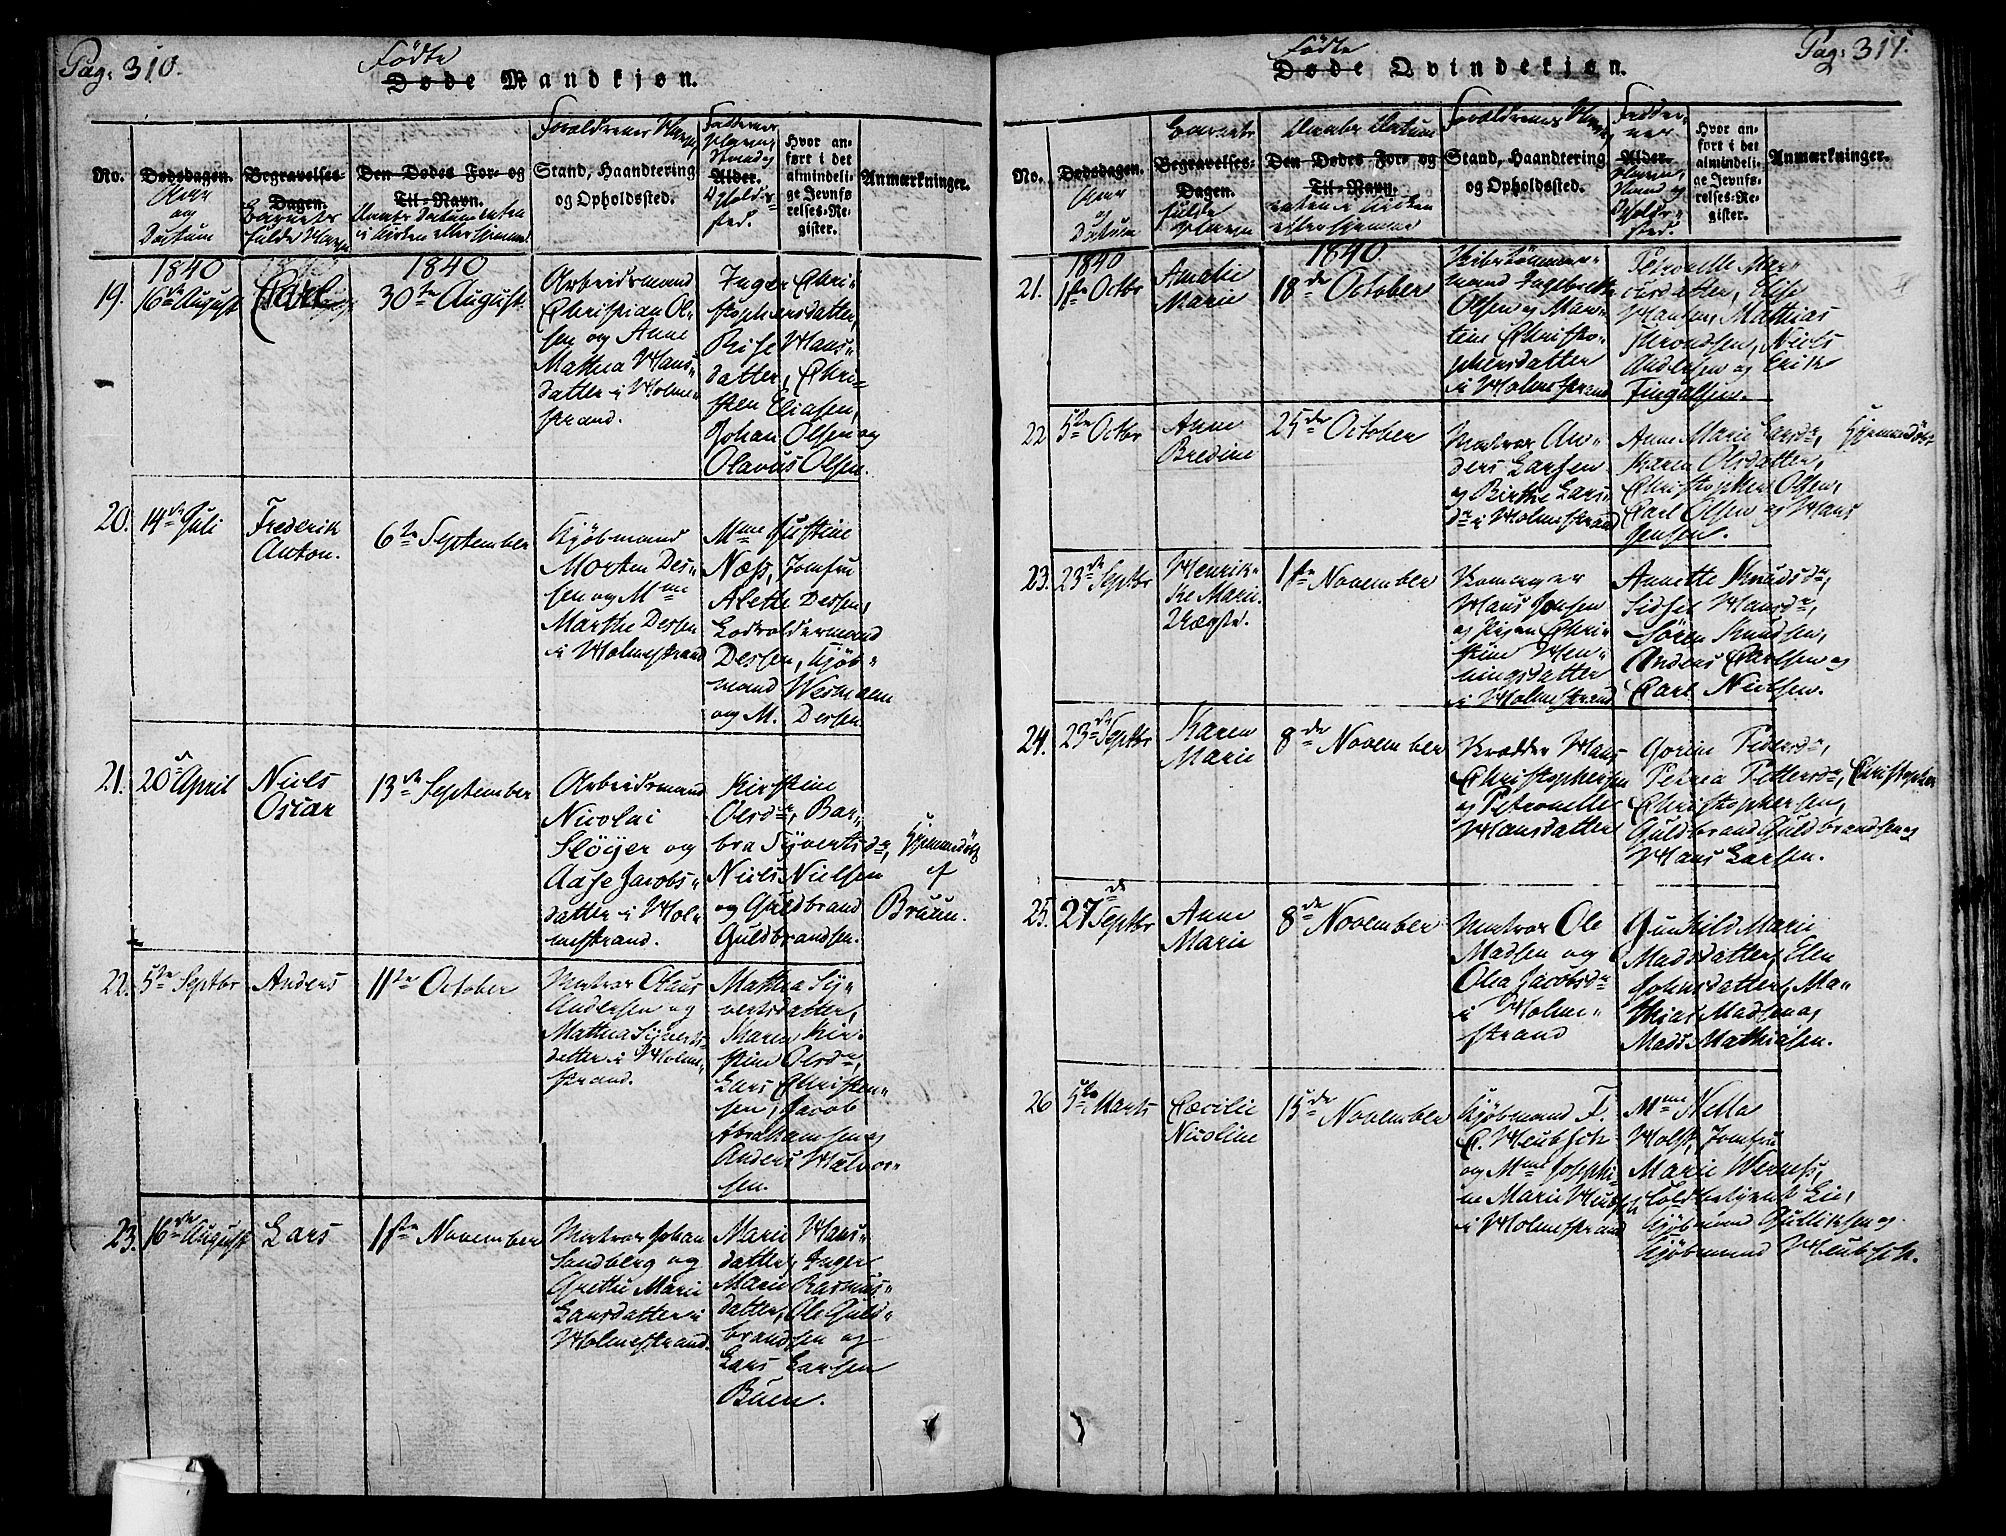 Pag: 310.
Fødte
Døde Mandkjøn.
No.
Dødsdagen.
Aar
og
Datum
Begravelses-
Dagen.
Barnets
fulde Navn
Den Dødes For- og
Til-Navn.
Daabs Datum enten
i Kirken eller hjemme
Forældrenes Navn
Stand, Haandtering
og Opholdssted.
Faddernes
Navn,
Stand og
Alder.
Opholds-
sted.
Hvor an-
ført i det
almindeli-
ge Jevnfø-
relses-Re-
gister.
Anmærkninger.
1840
19.
16de August
Carl
1840
30te August
Arbeidsmand
Christian Ol-
sen og Anne
Mathea Hans-
datter i Holme-
strand.
Inger Chri-
stophersdatter,
Hans-
datter, Chri-
sten Eliasen,
Johan Olsen og
Olavus Olsen.
20.
14de Juli
Frederik
Anton.
6te September
Kjöbmand
Morten Des-
sen og Mme
Marthe Dessen
i Holmestrand
Mme Justine
Næss, Jomfru
Alethe Dessen,
Lodsoldermand
Dessen, Kjöb-
mand Wermann
og M. Dessen
21.
20de April
Niels
Oscar
13de September
Arbeidsmand
Nicolai
Slöyer og
Aase Jacobs-
datter i Hol-
mestrand.
Kirstine
Olsdr, Bar-
bra Syvertsdr,
Niels Nielsen
og Guldbrand
Guldbrandsen.
Hjemmedöbt
af
Bruun.
22.
5te Septbr
Anders
11te October
Matros Olaus
Andersen og
Mathea Siverts-
datter i Holme-
strand.
Mathea Sy-
vertsdatter,
Maren Kir-
stine Olsdr,
Lars Christen-
sen, Jacob
Abrahamsen og
Anders Halvor-
sen.
23.
16de August
Lars
1ste November
Matros Johan
Sandberg og
Grethe Marie
Larsdatter i
Holmestrand.
Marie Hans-
datter, Inger
Marie Rasmus-
datter, Ole Guld-
brandsen og
Lars Larsen
Buen.
Pag: 311.
Fødte
Døde Qvindekjøn.
No.
Dødsdagen.
Aar
og
Datum
Barnets
Begravelses-
Dagen.
fulde
Navn
Daabs Datum
Den Dødes For- og
Til-Navn.
enten i Kirken
eller hjemme
Forældrenes Navn
Stand, Haandtering
og Opholdssted.
Fadder-
nes
Alder.
Navn,
Stand og
Opholds-
sted.
Hvor an-
ført i det
almindeli-
ge Jevnfø-
relses-Re-
gister.
Anmærkninger.
1840
21.
1ste Octbr
Amalie
Marie
1840
18de October
Skibstömmer-
mand Ingebreth
Olsen og Mar-
tine Christo-
phersdatter
i Holmestrand
Petronelle Mar-
cusdatter, Else
Hansen, Mathias
Trondsen, Niels
Andersen og Erik
Fingalsen.
22
5te Octbr
Anne
Bredine
25de October
Matros An-
ders Larsen
og Birthe Lars-
dr i Holmestrand
Anne Marie Larsdr,
Karen Olsdatter,
Christopher Olsen,
Carl Olsen og Hans
Jensen.
Hjemmedöbt
23.
23de Septbr
Henrik-
ke Marie
1ste November
Hans Jensen
og Pigen Chri-
stine Hen-
ningsdatter
i Holmestrand
Annette Knudsdr,
Sidsel Hansdr,
Sören Knudsen,
Anders Carlsen og
Carl Nielsen.
24.
23de Septbr
Karen
Marie
8de November
Hans
Christophersen
og Petronelle
Hansdatter
Gorine Pedersdr,
Petrea Pettersdr, Christopher
Christophersen,
Guldbrand Guldbrandsen og
Hans Larsen.
25.
27de Septbr
Anne
Marie
8de November
Matros Ole
Madsen og
Olea Jacobsdr
i Holme-
strand
Gunhild Marie
Madsdatter, Elen
Johnsdatter, Ma-
thias Madsen og
Mads Mathiasen.
26
5te Marts
Cæcilie
Nicoline
15de November
Kjöbmand F.
C. Heubsch
og Mme Josephi-
ne Marie Heubsch
i Holmestrand
Mme Nella
Holst, Jomfru
Marie Werness,
Toldbetjent Lie,
Kjöbmand Gulliksen og
Kjöbmand Heubsch.